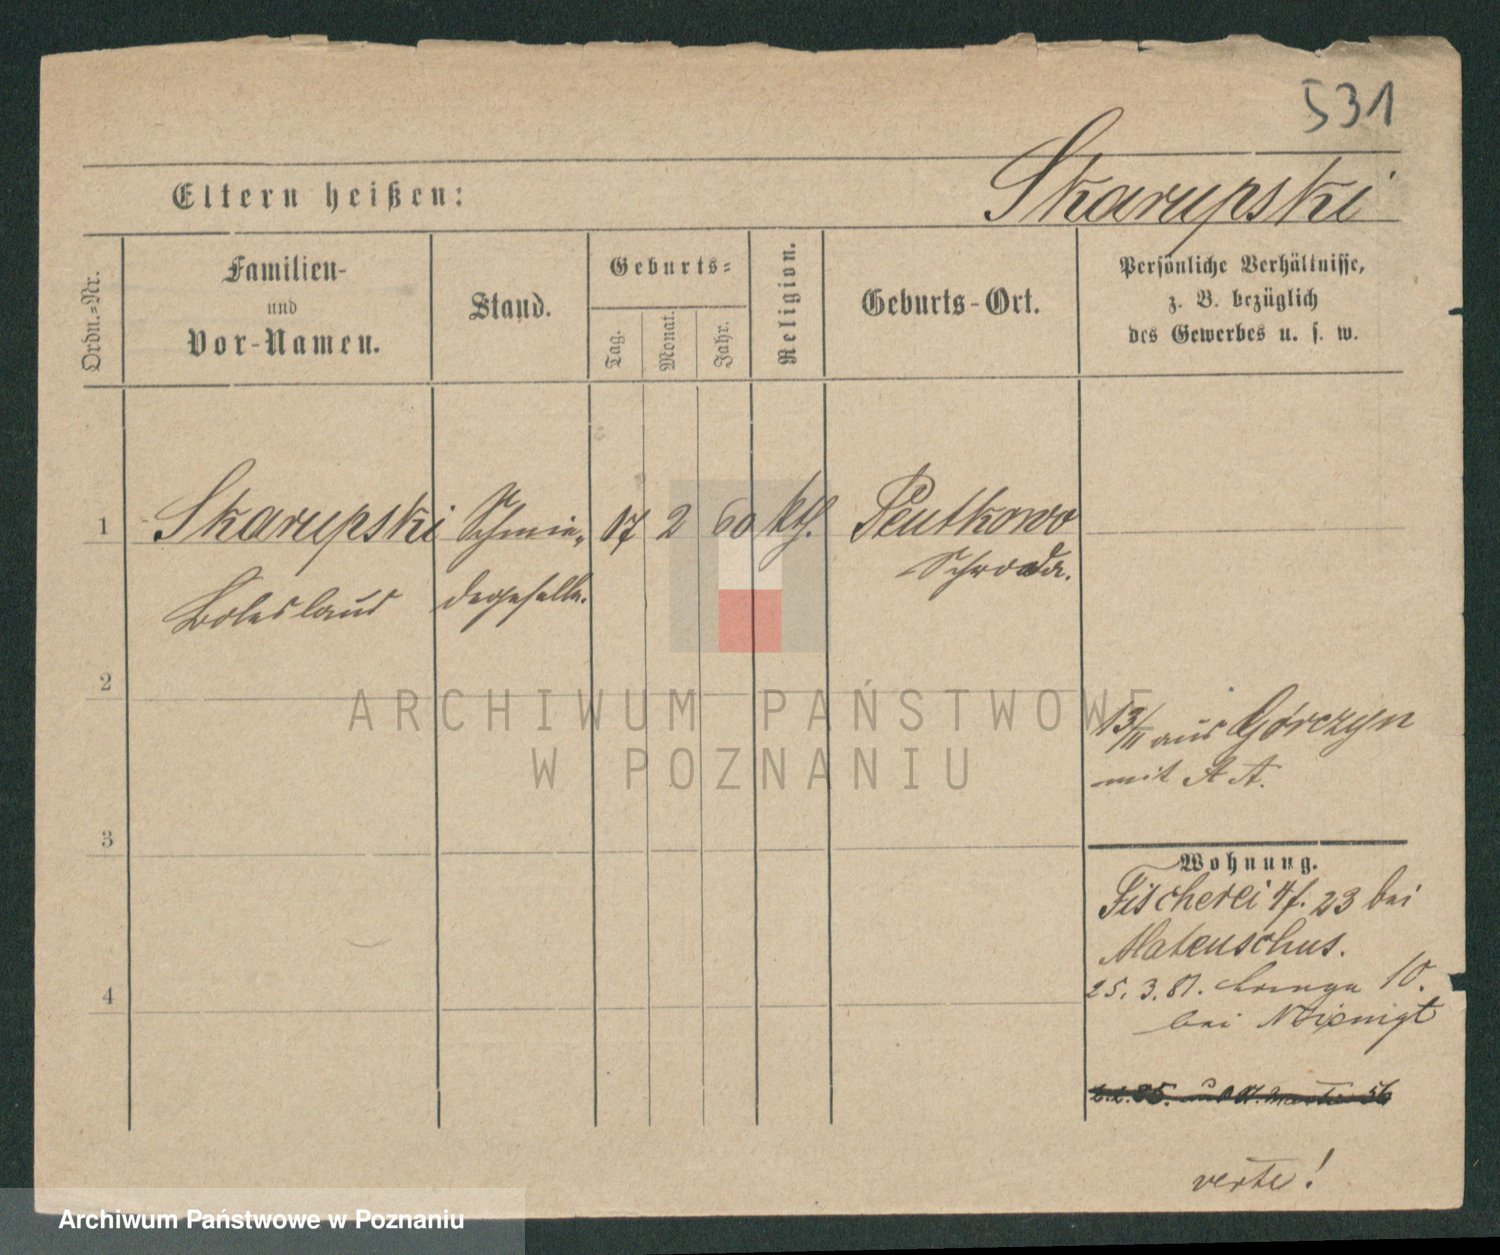 531
Eltern heißen:
Skarupski
Ordn.-Nr.
Familien-
und
Vor-Namen.
Stand.
Geburts-
Tag.
Monat.
Jahr.
Religion.
Geburts-Ort.
Persönliche Verhältnisse,
z. B. bezüglich
des Gewerbes u. s. w.
1 Skarupski Schmie- 17 2 60 kth. Pentkowo
Boleslaus degeselle. Schroda.
2
13/11 aus Górczyn
mit A A.
3
Wohnung.
Fischerei 4/5. 23 bei
Mateuschus.
4
25. 3. 81. Lange 10.
bei
verte!
ARCHIWUM PAŃSTWOWE
W POZNANIU
Archiwum Państwowe w Poznaniu